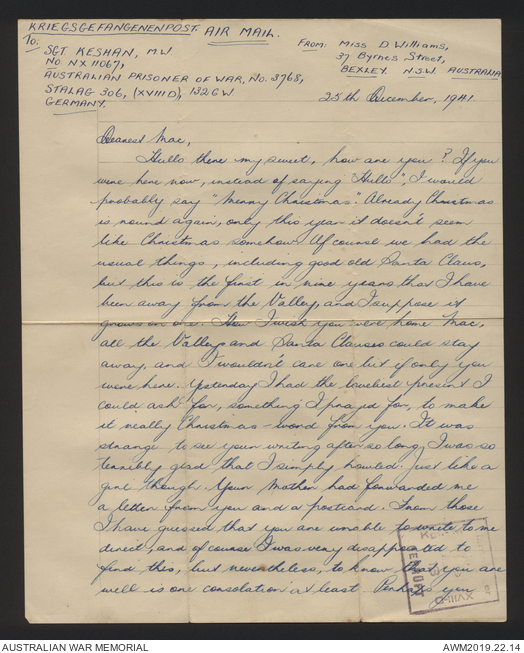 KRIEGSGEFANGENENPOST. AIR MAIL.
To:
SGT KESHAN, M.W
No NX 11067,
AUSTRALIAN PRISONER OF WAR, No. 3768,
STALAG 306, (XVIII D), 132 GW
GERMANY.
FROM: MISS D. Williams,
37 Byrnes Street,
BEXLEY. N.S.W. AUSTRALIA
25th December, 1941
Dearest Mac,
Hullo there my sweet, how are you? If you
were here now, instead of saying "Hullo", I would
probably say "Merry Christmas". Already Christmas
is round again, only this year it doesn't seem
like Christmas somehow. Of course we had the
usual things, including good old Santa Claus,
but this is the first in nine years that I have
been away from the Valley, and I suppose it
grows on one. How I wish you were home Mac,
all the Valleys and Santa Clauses could stay
away, and I wouldn't care one bit if only you
were here. Yesterday I had the loveliest present I
could ask for, something I prayed for, to make
it really Christmas - word from you. It was
strange to see your writing after so long, I was so
terribly glad that I simply howled. just like a
girl though. Your Mother had forwarded me
a letter from you and a postcard. From those
I have guessed that you are unable to write to me
direct, and of course I was very disappointed to
find this, but nevertheless, to know that you are
well is one consolation at least. Perhaps you
GEPRÜFT
XVIII-D
AUSTRALIAN WAR MEMORIAL
AWM2019.22.14